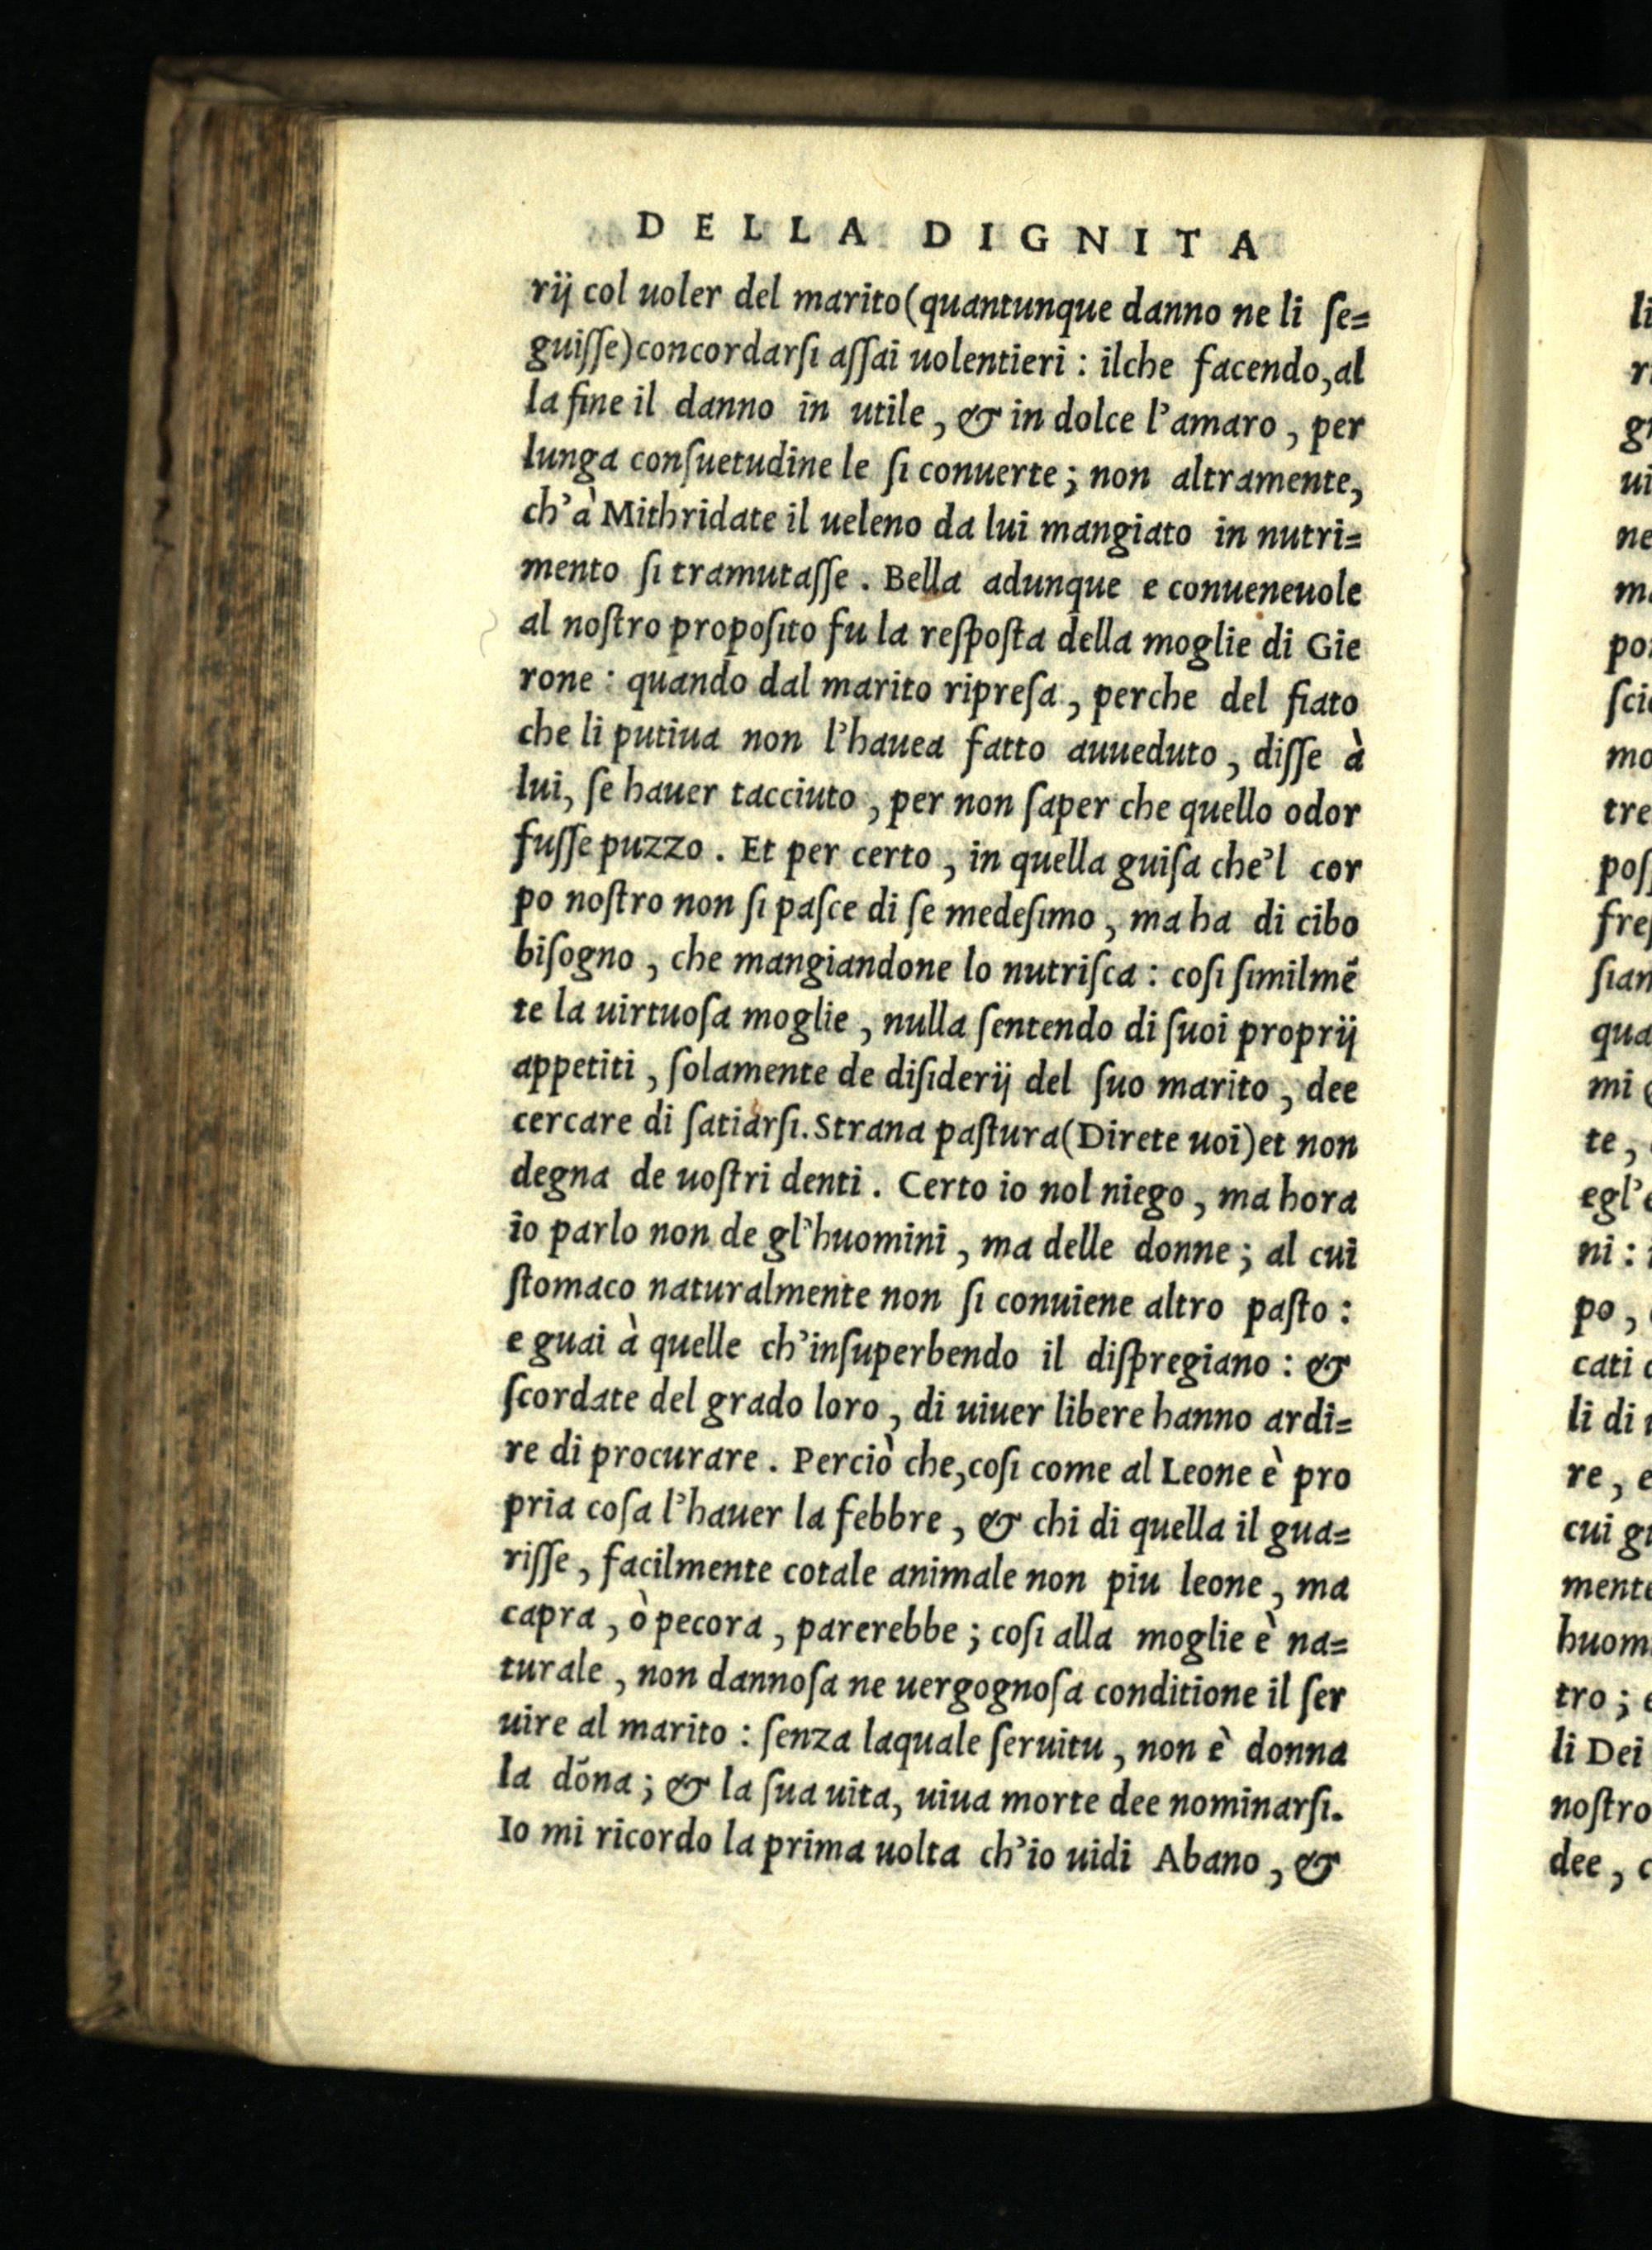 DELLA DIGNITA
rij col uoler del marito (quantunque danno ne li ſe=
guiſſe) concordarſi aſſai uolentieri : ilche facendo, al
la fine il danno in utile, & in dolce l'amaro, per
lunga conſuetudine le ſi conuerte; non altramente,
ch'à Mithridate il ueleno da lui mangiato in nutri=
mento ſi tramutaſſe. Bella adunque e conueneuole
al noſtro propoſito fu la reſpoſta della moglie di Gie
rone : quando dal marito ripreſa, perche del fiato
che li putiua non l'hauea fatto auueduto, diſſe à
lui, ſe hauer tacciuto, per non ſaper che quello odor
fuſſe puzzo. Et per certo, in quella guiſa che'l cor
po noſtro non ſi paſce di ſe medeſimo, ma ha di cibo
biſogno, che mangiandone lo nutriſca : coſi ſimilmẽ
te la uirtuoſa moglie, nulla ſentendo di ſuoi proprij
appetiti, ſolamente de diſiderij del ſuo marito, dee
cercare di ſatiarſi. Strana paſtura (Direte uoi) et non
degna de uoſtri denti. Certo io nol niego, ma hora
io parlo non de gl'huomini, ma delle donne; al cui
ſtomaco naturalmente non ſi conuiene altro paſto :
e guai à quelle ch'inſuperbendo il diſpregiano : &
ſcordate del grado loro, di uiuer libere hanno ardi=
re di procurare. Perciò che, coſi come al Leone è pro
pria coſa l'hauer la febbre, & chi di quella il gua=
riſſe, facilmente cotale animale non piu leone, ma
capra, ò pecora, parerebbe; coſi alla moglie è na=
turale, non dannoſa ne uergognoſa conditione il ſer
uire al marito : ſenza laquale ſeruitu, non è donna
la dõna; & la ſua uita, uiua morte dee nominarſi.
Io mi ricordo la prima uolta ch'io uidi Abano, &